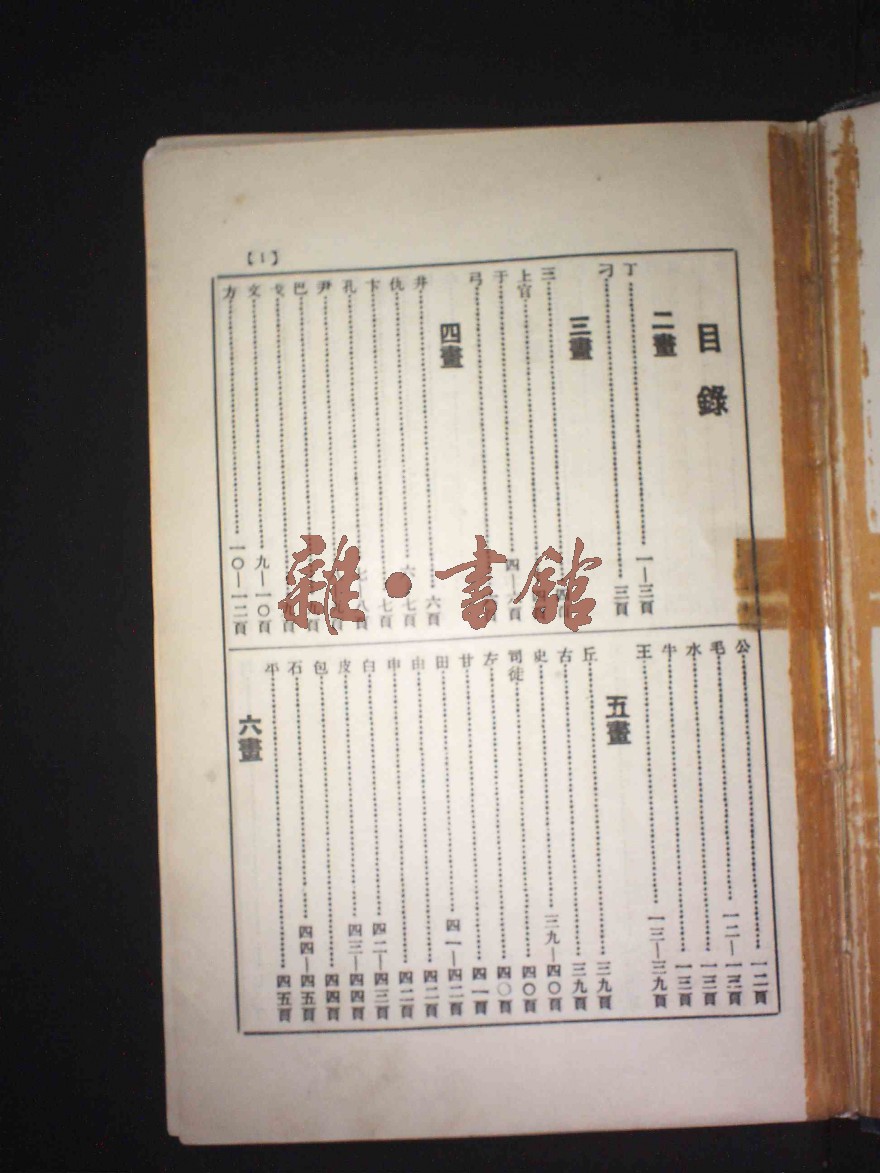 【1】
目錄
二畫
丁 一—三頁
刁 三頁
三畫
三
上官
于 四—
弓
四畫
井 六頁
仇 七頁
卞 七頁
孔 八頁
尹
巴
戈
文 九—一〇頁
方 一〇—一二頁
公 一二頁
毛 一二—一三頁
水 一三頁
牛 一三頁
王 一三—三九頁
五畫
丘 三九頁
古 三九頁
史 三九—四〇頁
司徒 四〇頁
左 四〇頁
甘 四一頁
田 四一—四二頁
由 四二頁
申 四二頁
白 四二—四三頁
皮 四三—四四頁
包 四四頁
石 四四—四五頁
平 四五頁
六畫
雜·書館